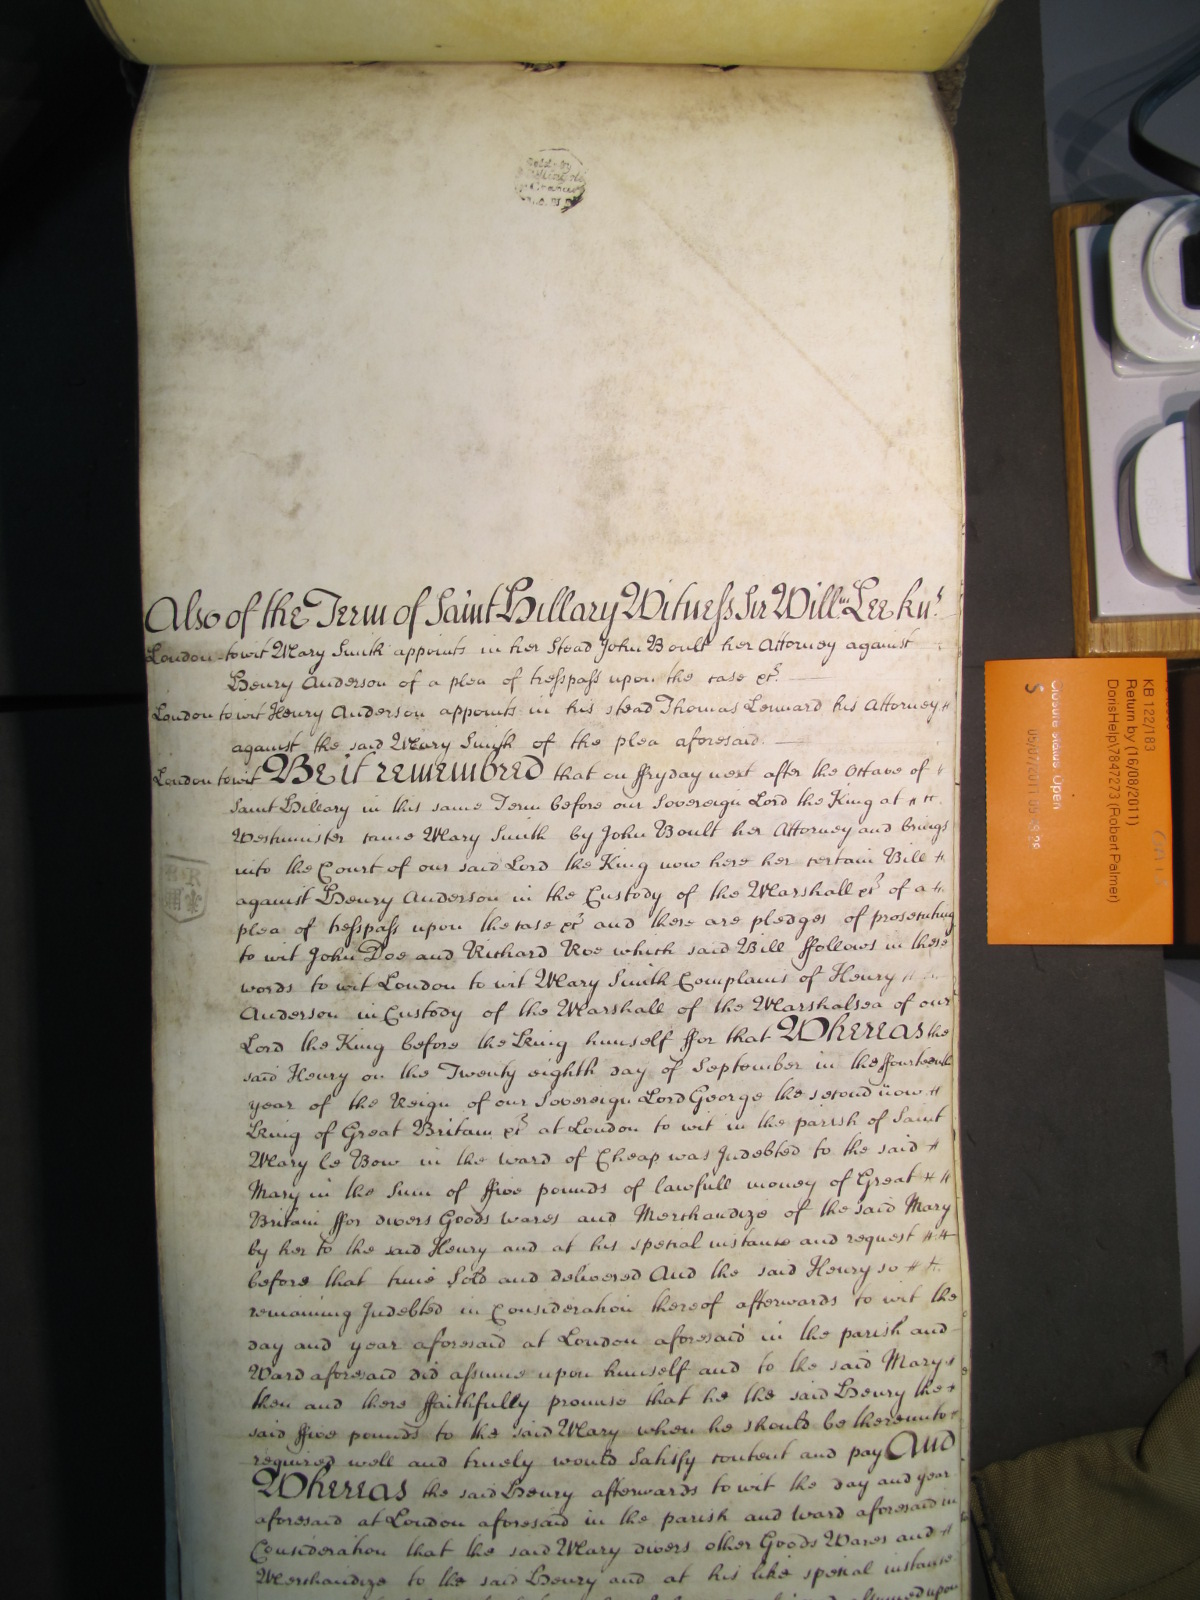 Also of the Term of Saint Hillary Witness Sir Will.m Lee kn.t
London to wit Mary Smith appoints in her Stead John Boult her Attorney against
Henry Anderson of a plea of tresspass upon the case &c.
London to wit Henry Anderson appoints in his stead Thomas Lennard his Attorney
against the said Mary Smith of the plea aforesaid.
London to wit Be it remembred that on ffryday next after the Octave of
Saint Hillary in this same Term before our Sovereign Lord the King at
Westminster came Mary Smith by John Boult her Attorney and brings
into the Court of our said Lord the King now here her certain Bill
against Henry Anderson in the Custody of the Marshall &c. of a
plea of tresspass upon the case &c. and there are pledges of prosecuting
to wit John Doe and Richard Roe which said Bill ffollows in these
words to wit London to wit Mary Smith Complains of Henry
Anderson in Custody of the Marshall of the Marshalsea of our
Lord the King before the King himself ffor that Whereas the
said Henry on the Twenty eighth day of September in the ffourteenth
year of the Reign of our Sovereign Lord George the second now
King of Great Britain &c. at London to wit in the parish of Saint
Mary le Bow in the ward of Cheap was Indebted to the said
Mary in the Sum of ffive pounds of lawfull money of Great
Britain ffor divers Goods wares and Merchandize of the said Mary
by her to the said Henry and at his special instance and request
before that time Sold and delivered And the said Henry so
remaining Indebted in Consideration thereof afterwards to wit the
day and year aforesaid at London aforesaid in the parish and
Ward aforesaid did assume upon himself and to the said Mary
then and there ffaithfully promise that he the said Henry the
said ffive pounds to the said Mary when he should be thereunto
required well and truely would Satisfy content and pay And
Whereas the said Henry afterwards to wit the day and year
aforesaid at London aforesaid in the parish and ward aforesaid in
Consideration that the said Mary divers other Goods Wares and
Merchandize to the said Henry and at his like special instance
assumed upon
KB 122/183
Return by (16/08/2011)
DorisHelp\7847273 (Robert Palmer)
Closure status: Open
S